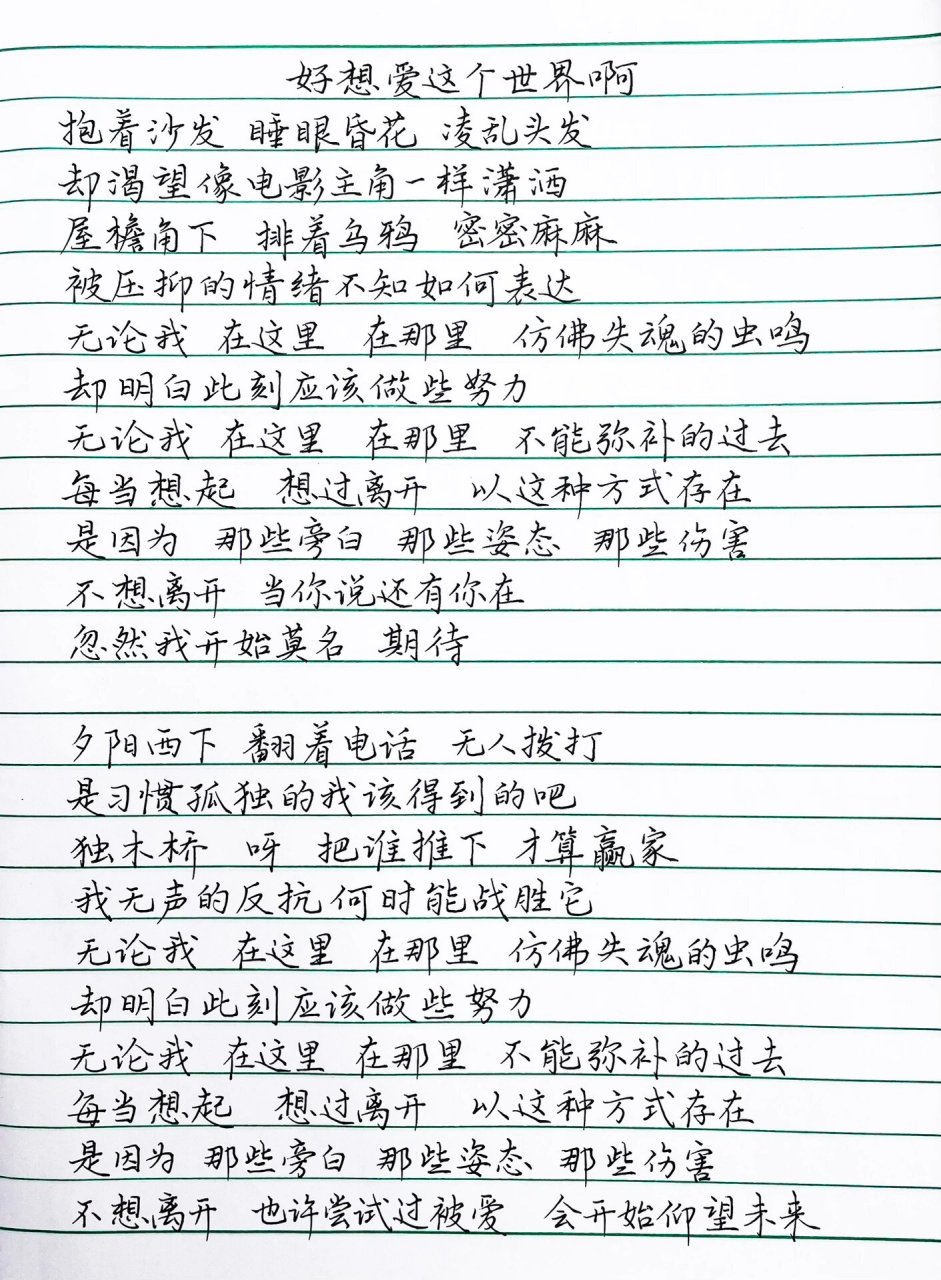 好想爱这个世界啊
抱着沙发 睡眼昏花 凌乱头发
却渴望像电影主角一样潇洒
屋檐角下 排着乌鸦 密密麻麻
被压抑的情绪不知如何表达
无论我 在这里 在那里 仿佛失魂的虫鸣
却明白此刻应该做些努力
无论我 在这里 在那里 不能弥补的过去
每当想起 想过离开 以这种方式存在
是因为 那些旁白 那些姿态 那些伤害
不想离开 当你说还有你在
忽然我开始莫名 期待
夕阳西下 翻着电话 无人拨打
是习惯孤独的我该得到的吧
独木桥 呀 把谁推下 才算赢家
我无声的反抗何时能战胜它
无论我 在这里 在那里 仿佛失魂的虫鸣
却明白此刻应该做些努力
无论我 在这里 在那里 不能弥补的过去
每当想起 想过离开 以这种方式存在
是因为 那些旁白 那些姿态 那些伤害
不想离开 也许尝试过被爱 会开始仰望未来